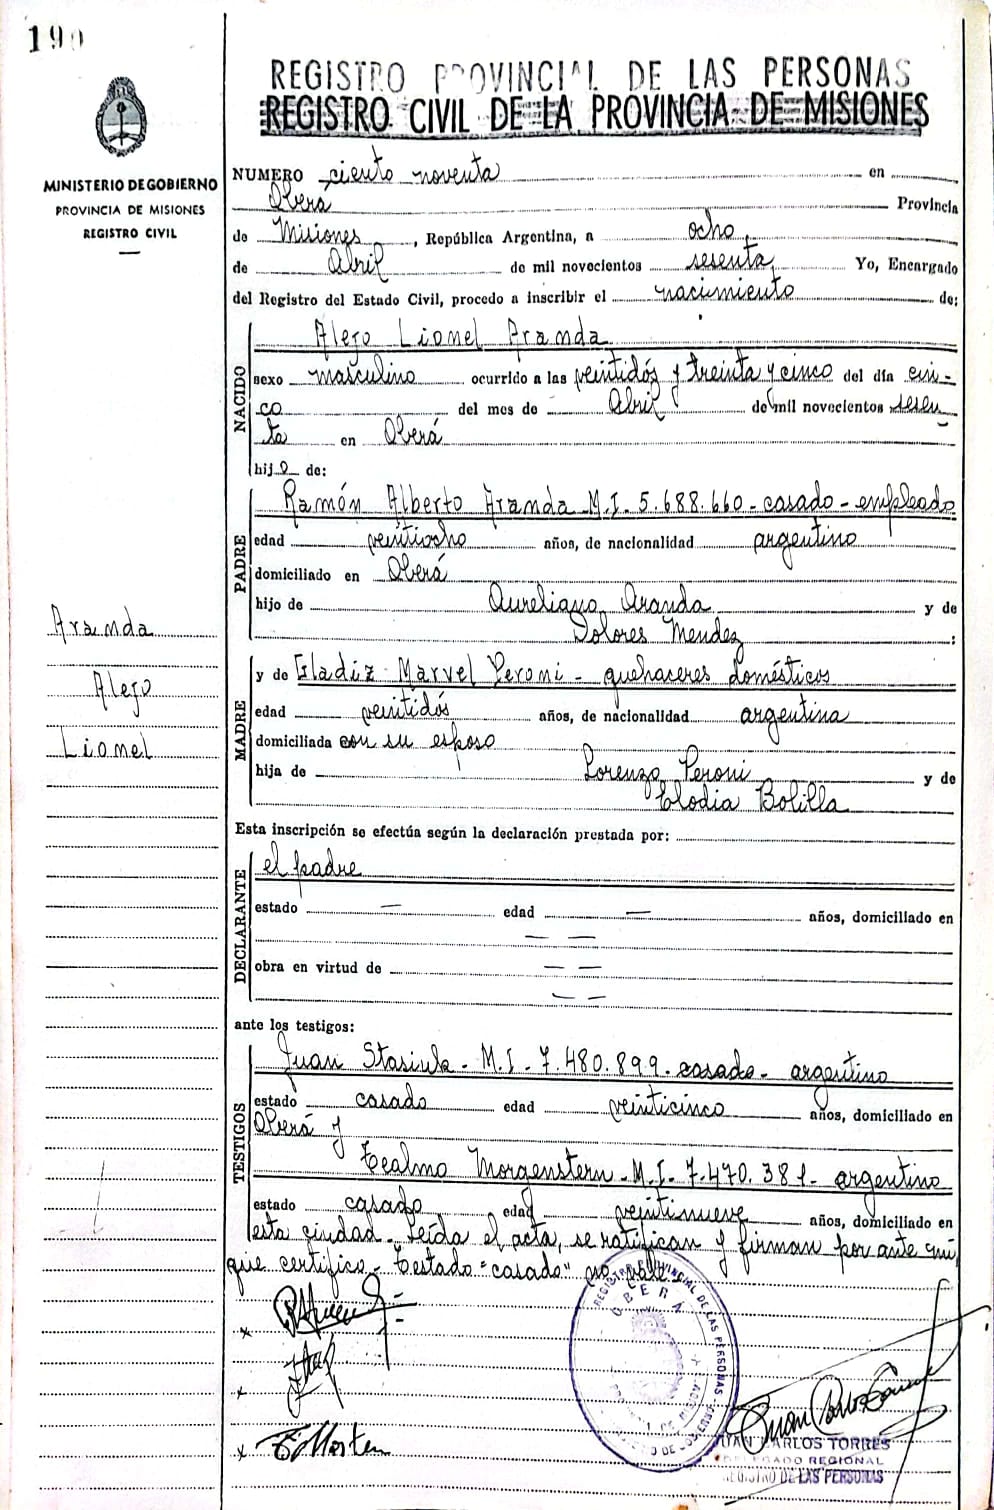 190
REGISTRO PROVINCIAL DE LAS PERSONAS
REGISTRO CIVIL DE LA PROVINCIA DE MISIONES
MINISTERIO DE GOBIERNO
PROVINCIA DE MISIONES
REGISTRO CIVIL
NUMERO ciento noventa en
Oberá Provincia
de Misiones, República Argentina, a ocho
de Abril de mil novecientos sesenta Yo, Encargado
del Registro del Estado Civil, procedo a inscribir el nacimiento de:
NACIDO
Alejo Lionel Aranda
sexo masculino ocurrido a las veintidós y treinta y cinco del día cin-
co del mes de Abril de mil novecientos sesen
ta en Oberá
hijo de:
PADRE
Ramón Alberto Aranda M.I. 5.688.660 - casado - empleado
edad veintiocho años, de nacionalidad argentino
domiciliado en Oberá
hijo de Aureliano Aranda y de
Dolores Mendez :
Aranda
Alejo
Lionel
MADRE
y de Gladiz Marvel Peroni - quehaceres domésticos
edad veintidós años, de nacionalidad argentina
domiciliada con su esposo
hija de Lorenzo Peroni y de
Clodia Bolilla
Esta inscripción se efectúa según la declaración prestada por:
DECLARANTE
el padre
estado — edad — años, domiciliado en
— —
obra en virtud de — —
— —
ante los testigos:
TESTIGOS
Juan Stasiuk - M.I - 7.480.899 - casado - argentino
estado casado edad veinticinco años, domiciliado en
Oberá y
Tealmo Morgenstern - M.I. 7.470.381 - argentino
estado casado edad veintinueve años, domiciliado en
esta ciudad - Leída el acta, se ratifican y firman por ante mí,
que certifico - Testado "casado" no vale -
REGISTRO PROVINCIAL DE LAS PERSONAS
OBERÁ
JUAN CARLOS TORRES
DELEGADO REGIONAL
REGISTRO DE LAS PERSONAS